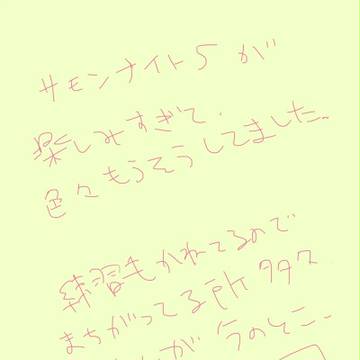 サモンナイト5が
楽しみすぎて、
色々もうそうしてました。
練習もかねてるので
まちがってる
が 今のそこ